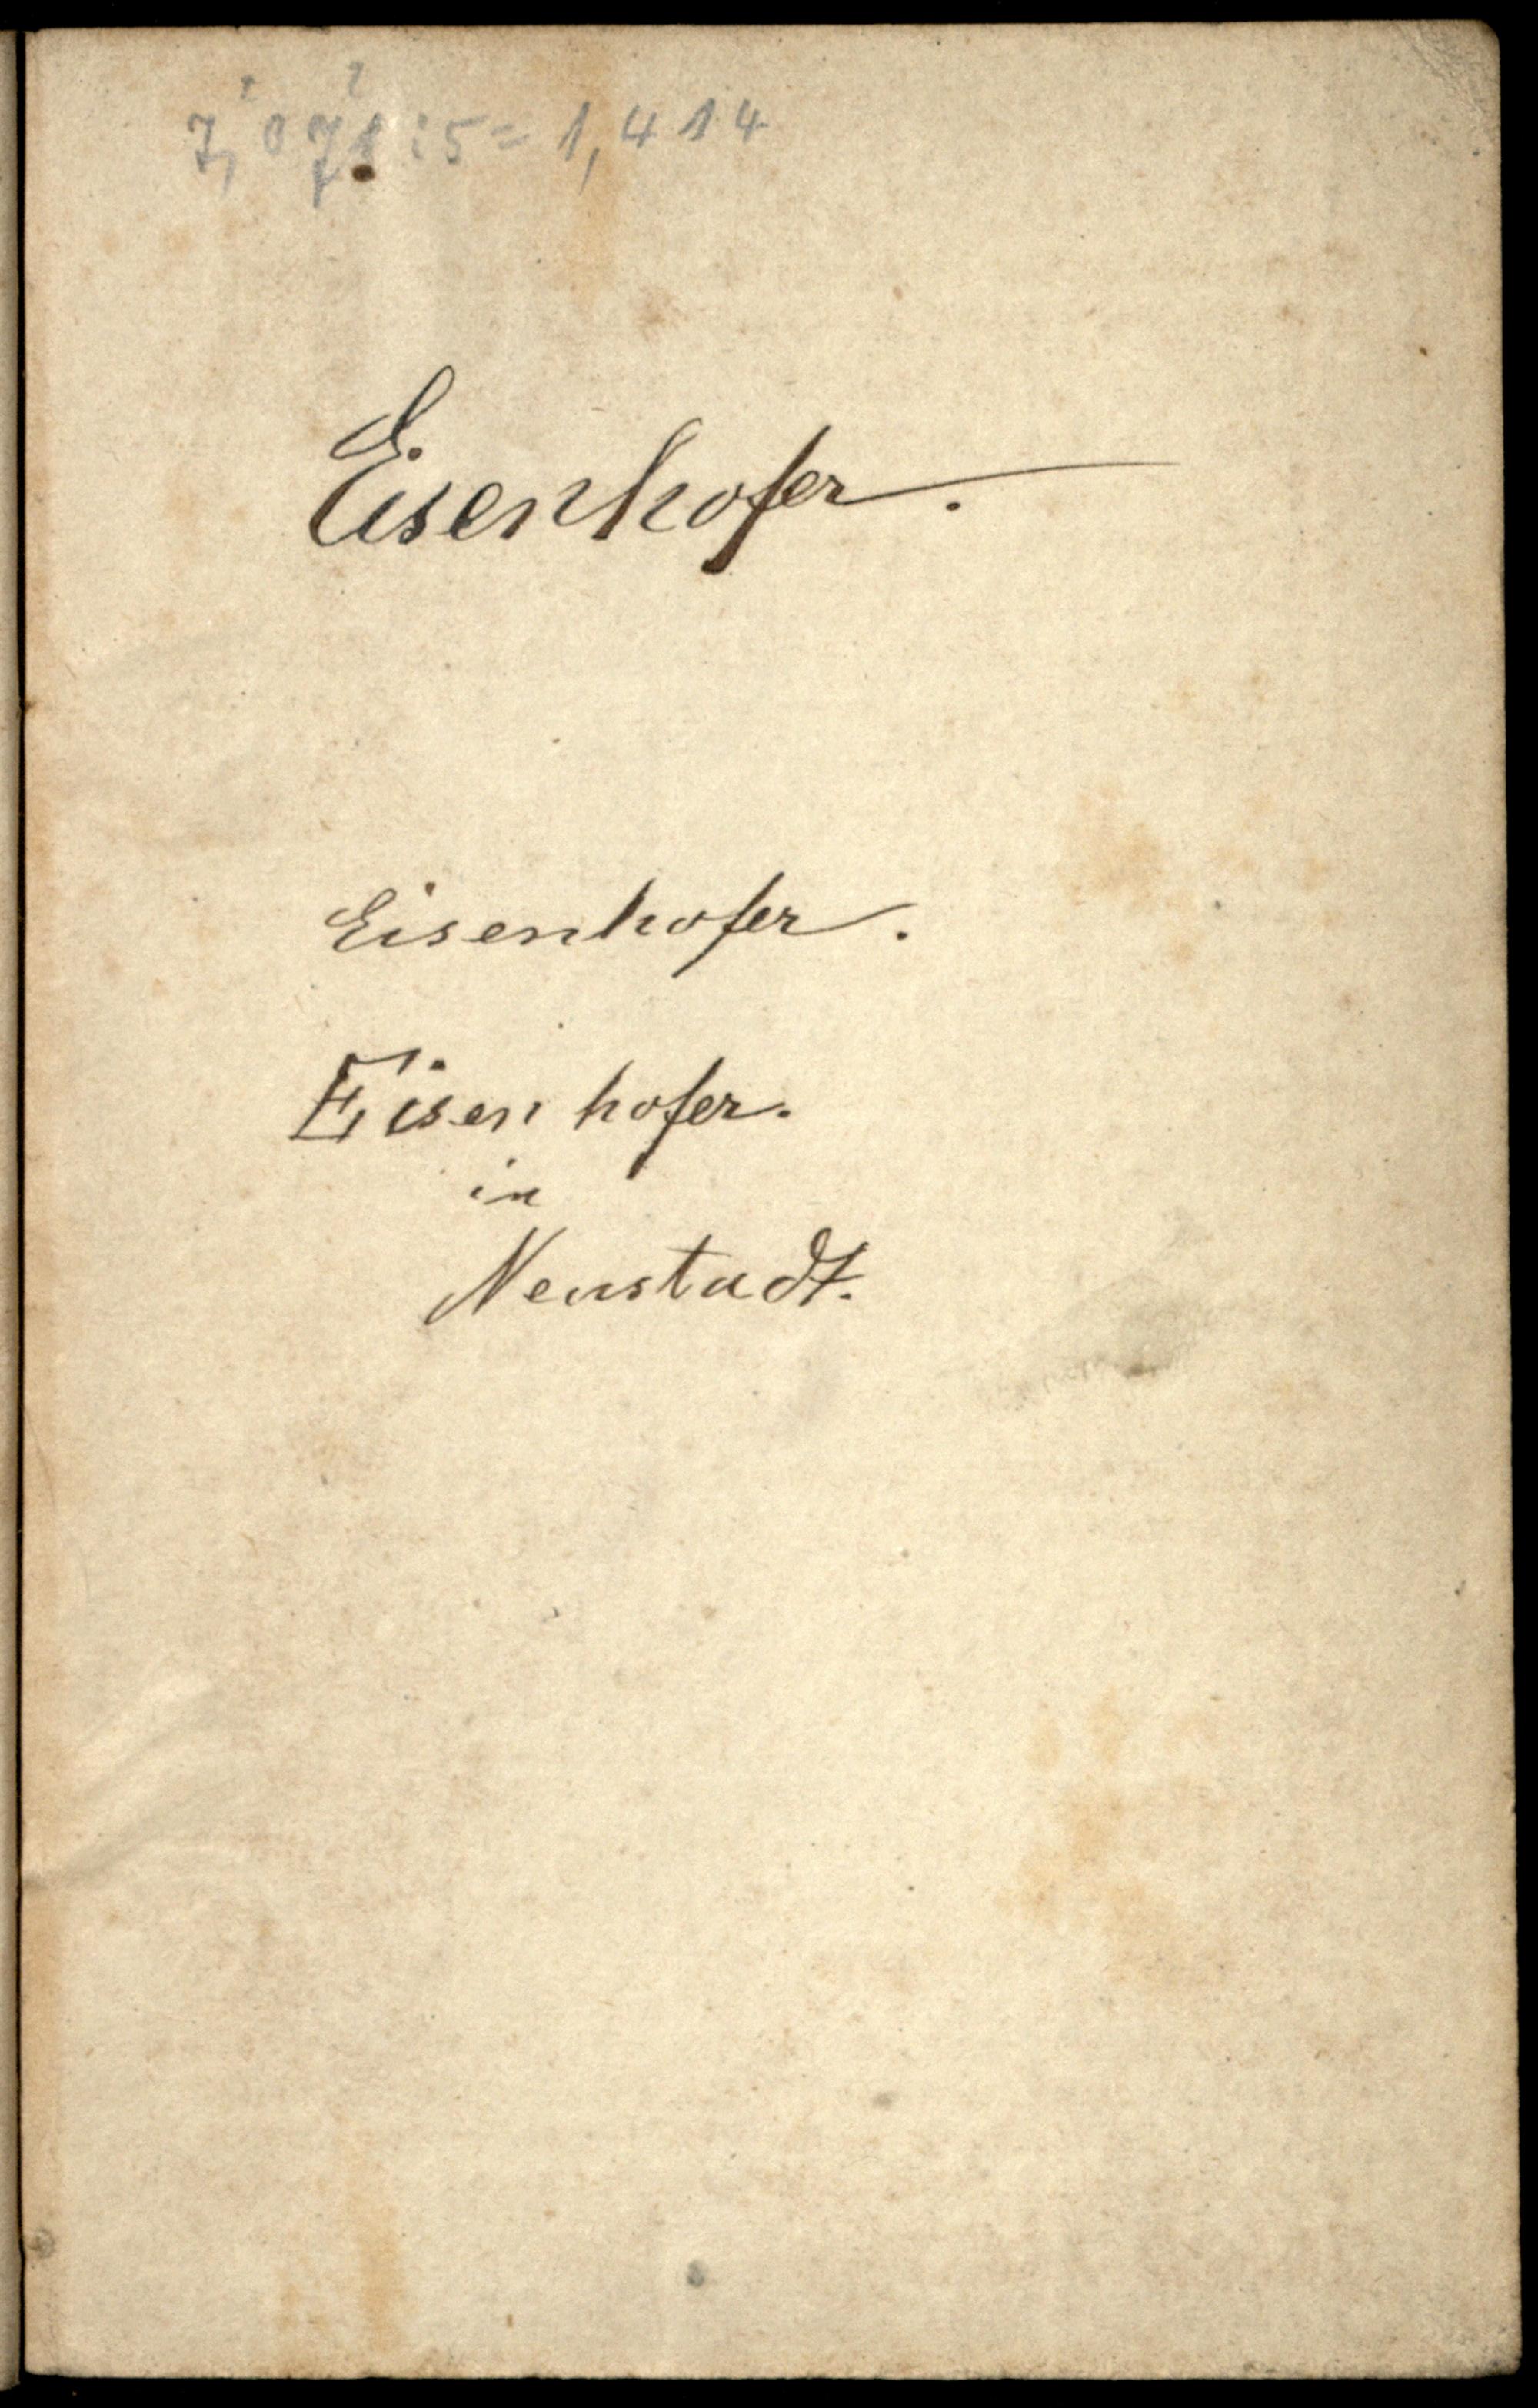 7,071:5= 1,414
Eisenhofer.
Eisenhofer.
Eisenhofer.
in
Neustadt.